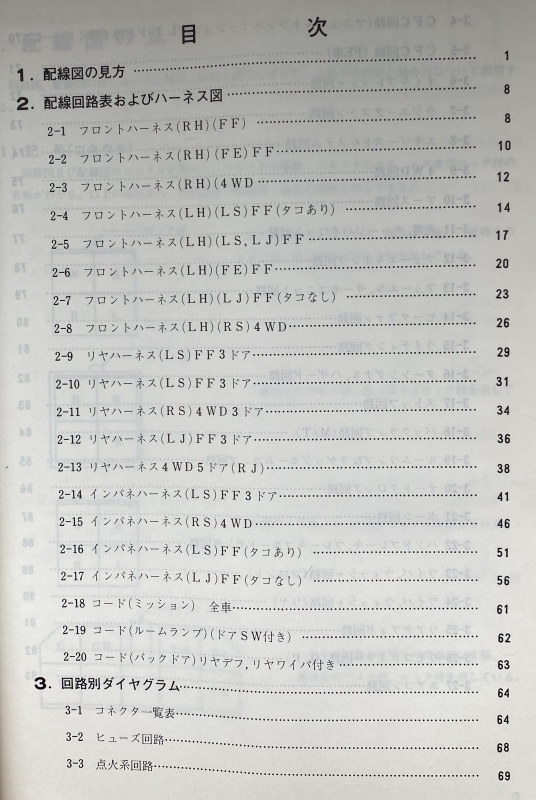 目 次
1. 配線図の見方 1
2. 配線回路表およびハーネス図 8
2-1 フロントハーネス(RH)(FF) 8
2-2 フロントハーネス(RH)(FE)FF 10
2-3 フロントハーネス(RH)(4WD 12
2-4 フロントハーネス(LH)(LS)FF(タコあり) 14
2-5 フロントハーネス(LH)(LS,LJ)FF 17
2-6 フロントハーネス(LH)(FE)FF 20
2-7 フロントハーネス(LH)(LJ)FF(タコなし) 23
2-8 フロントハーネス(LH)(RS)4WD 26
2-9 リヤハーネス(LS)FF3ドア 29
2-10 リヤハーネス(LS)FF3ドア 31
2-11 リヤハーネス(RS)4WD3ドア 34
2-12 リヤハーネス(LJ)FF3ドア 36
2-13 リヤハーネス4WD5ドア(RJ) 38
2-14 インパネハーネス(LS)FF3ドア 41
2-15 インパネハーネス(RS)4WD 46
2-16 インパネハーネス(LS)FF(タコあり) 51
2-17 インパネハーネス(LJ)FF(タコなし) 56
2-18 コード(ミッション) 全車 61
2-19 コード(ルームランプ)(ドアSW付き) 62
2-20 コード(バックドア)リヤデフ,リヤワイパ付き 63
3. 回路別ダイヤグラム 64
3-1 コネクタ一覧表 64
3-2 ヒューズ回路 68
3-3 点火系回路 69